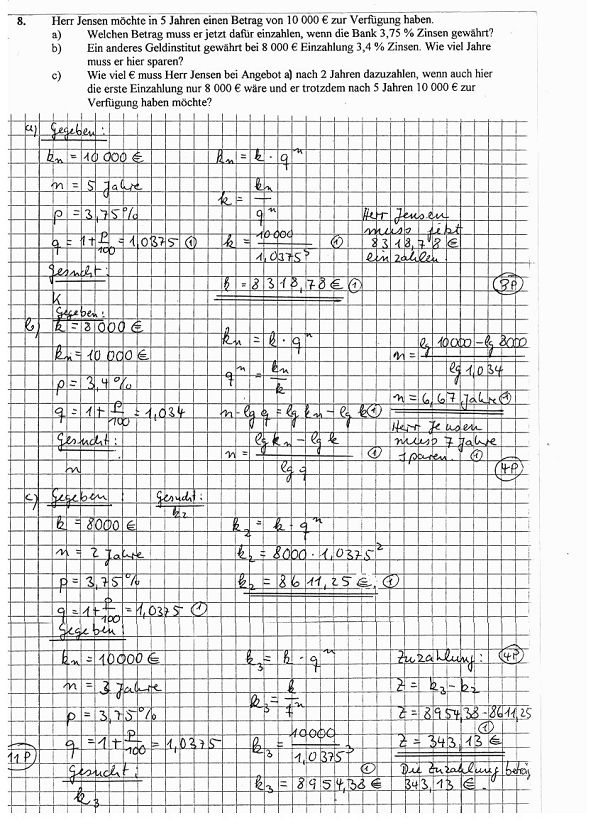 8. Herr Jensen möchte in 5 Jahren einen Betrag von 10 000 € zur Verfügung haben.
a) Welchen Betrag muss er jetzt dafür einzahlen, wenn die Bank 3,75 % Zinsen gewährt?
b) Ein anderes Geldinstitut gewährt bei 8 000 € Einzahlung 3,4 % Zinsen. Wie viel Jahre
muss er hier sparen?
c) Wie viel € muss Herr Jensen bei Angebot a) nach 2 Jahren dazuzahlen, wenn auch hier
die erste Einzahlung nur 8 000 € wäre und er trotzdem nach 5 Jahren 10 000 € zur
Verfügung haben möchte?
a) Gegeben:
kn = 10 000 €
n = 5 Jahre
p = 3,75 %
q = 1 + p/100 = 1,0375 ①
Gesucht:
k
kn = k · q^n
k = kn / q^n
k = 10 000 / 1,0375^5 ①
k = 8 318,78 € ①
Herr Jensen
muss jetzt
8 318,78 €
einzahlen.
3P
b) Gegeben:
k = 8 000 €
kn = 10 000 €
p = 3,4 %
q = 1 + p/100 = 1,034
Gesucht:
n
kn = k · q^n
q^n = kn / k
n · lg q = lg kn − lg k ①
n = (lg kn − lg k) / lg q ①
n = (lg 10000 − lg 8000) / lg 1,034
n = 6,67 Jahre ①
Herr Jensen
muss 7 Jahre
sparen. ①
4P
c) Gegeben:
k = 8000 €
n = 2 Jahre
p = 3,75 %
q = 1 + p/100 = 1,0375 ①
Gesucht:
k2
k2 = k · q^n
k2 = 8000 · 1,0375^2
k2 = 8 611,25 €. ①
Gegeben:
kn = 10000 €
n = 3 Jahre
p = 3,75 %
q = 1 + p/100 = 1,0375
Gesucht:
k3
11P
k3 = k · q^n
k3 = k / q^n
k3 = 10000 / 1,0375^3
k3 = 8 954,38 € ①
Zuzahlung: 4P
Z = k3 − k2
Z = 8954,38 − 8611,25
Z = 343,13 € ①
Die Zuzahlung beträg
343,13 €.